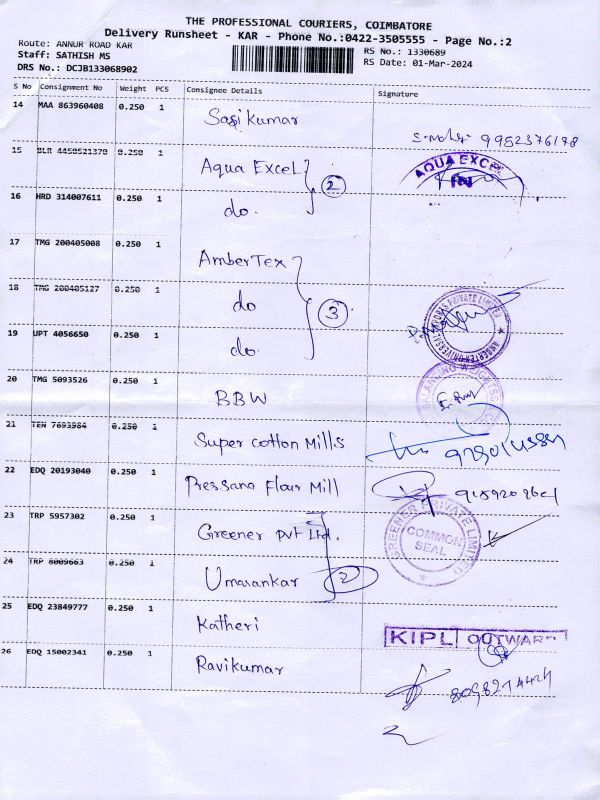 THE PROFESSIONAL COURIERS, COIMBATORE
Delivery Runsheet - KAR - Phone No.:0422-3505555 - Page No.:2
Route: ANNUR ROAD KAR
Staff: SATHISH MS
DRS No.: DCJB133068902
RS No.: 1330689
RS Date: 01-Mar-2024
S No Consignment No Weight PCS Consignee Details Signature
14 MAA 863960408 0.250 1 Sasikumar
9952376178
15 BLR 4450521370 0.250 1 Aqua Excel
AQUA EXCEL
2
16 HRD 314007611 0.250 1 do.
17 TMG 200405008 0.250 1 AmberTex
18 TMG 200405127 0.250 1 do
3
19 UPT 4056650 0.250 1 do.
20 TMG 5093526 0.250 1 BBW
21 TEN 7693984 0.250 1 Super Cotton Mills
22 EDQ 20193040 0.250 1 Pressana Flour Mill
23 TRP 5957302 0.250 1 Greener Pvt Ltd.
GREENER PRIVATE LIMITED
COMMON SEAL
24 TRP 8009663 0.250 1 Umasankar
2
25 EDQ 23849777 0.250 1 Katheri
KIPL OUTWARD
26 EDQ 15002341 0.250 1 Ravikumar